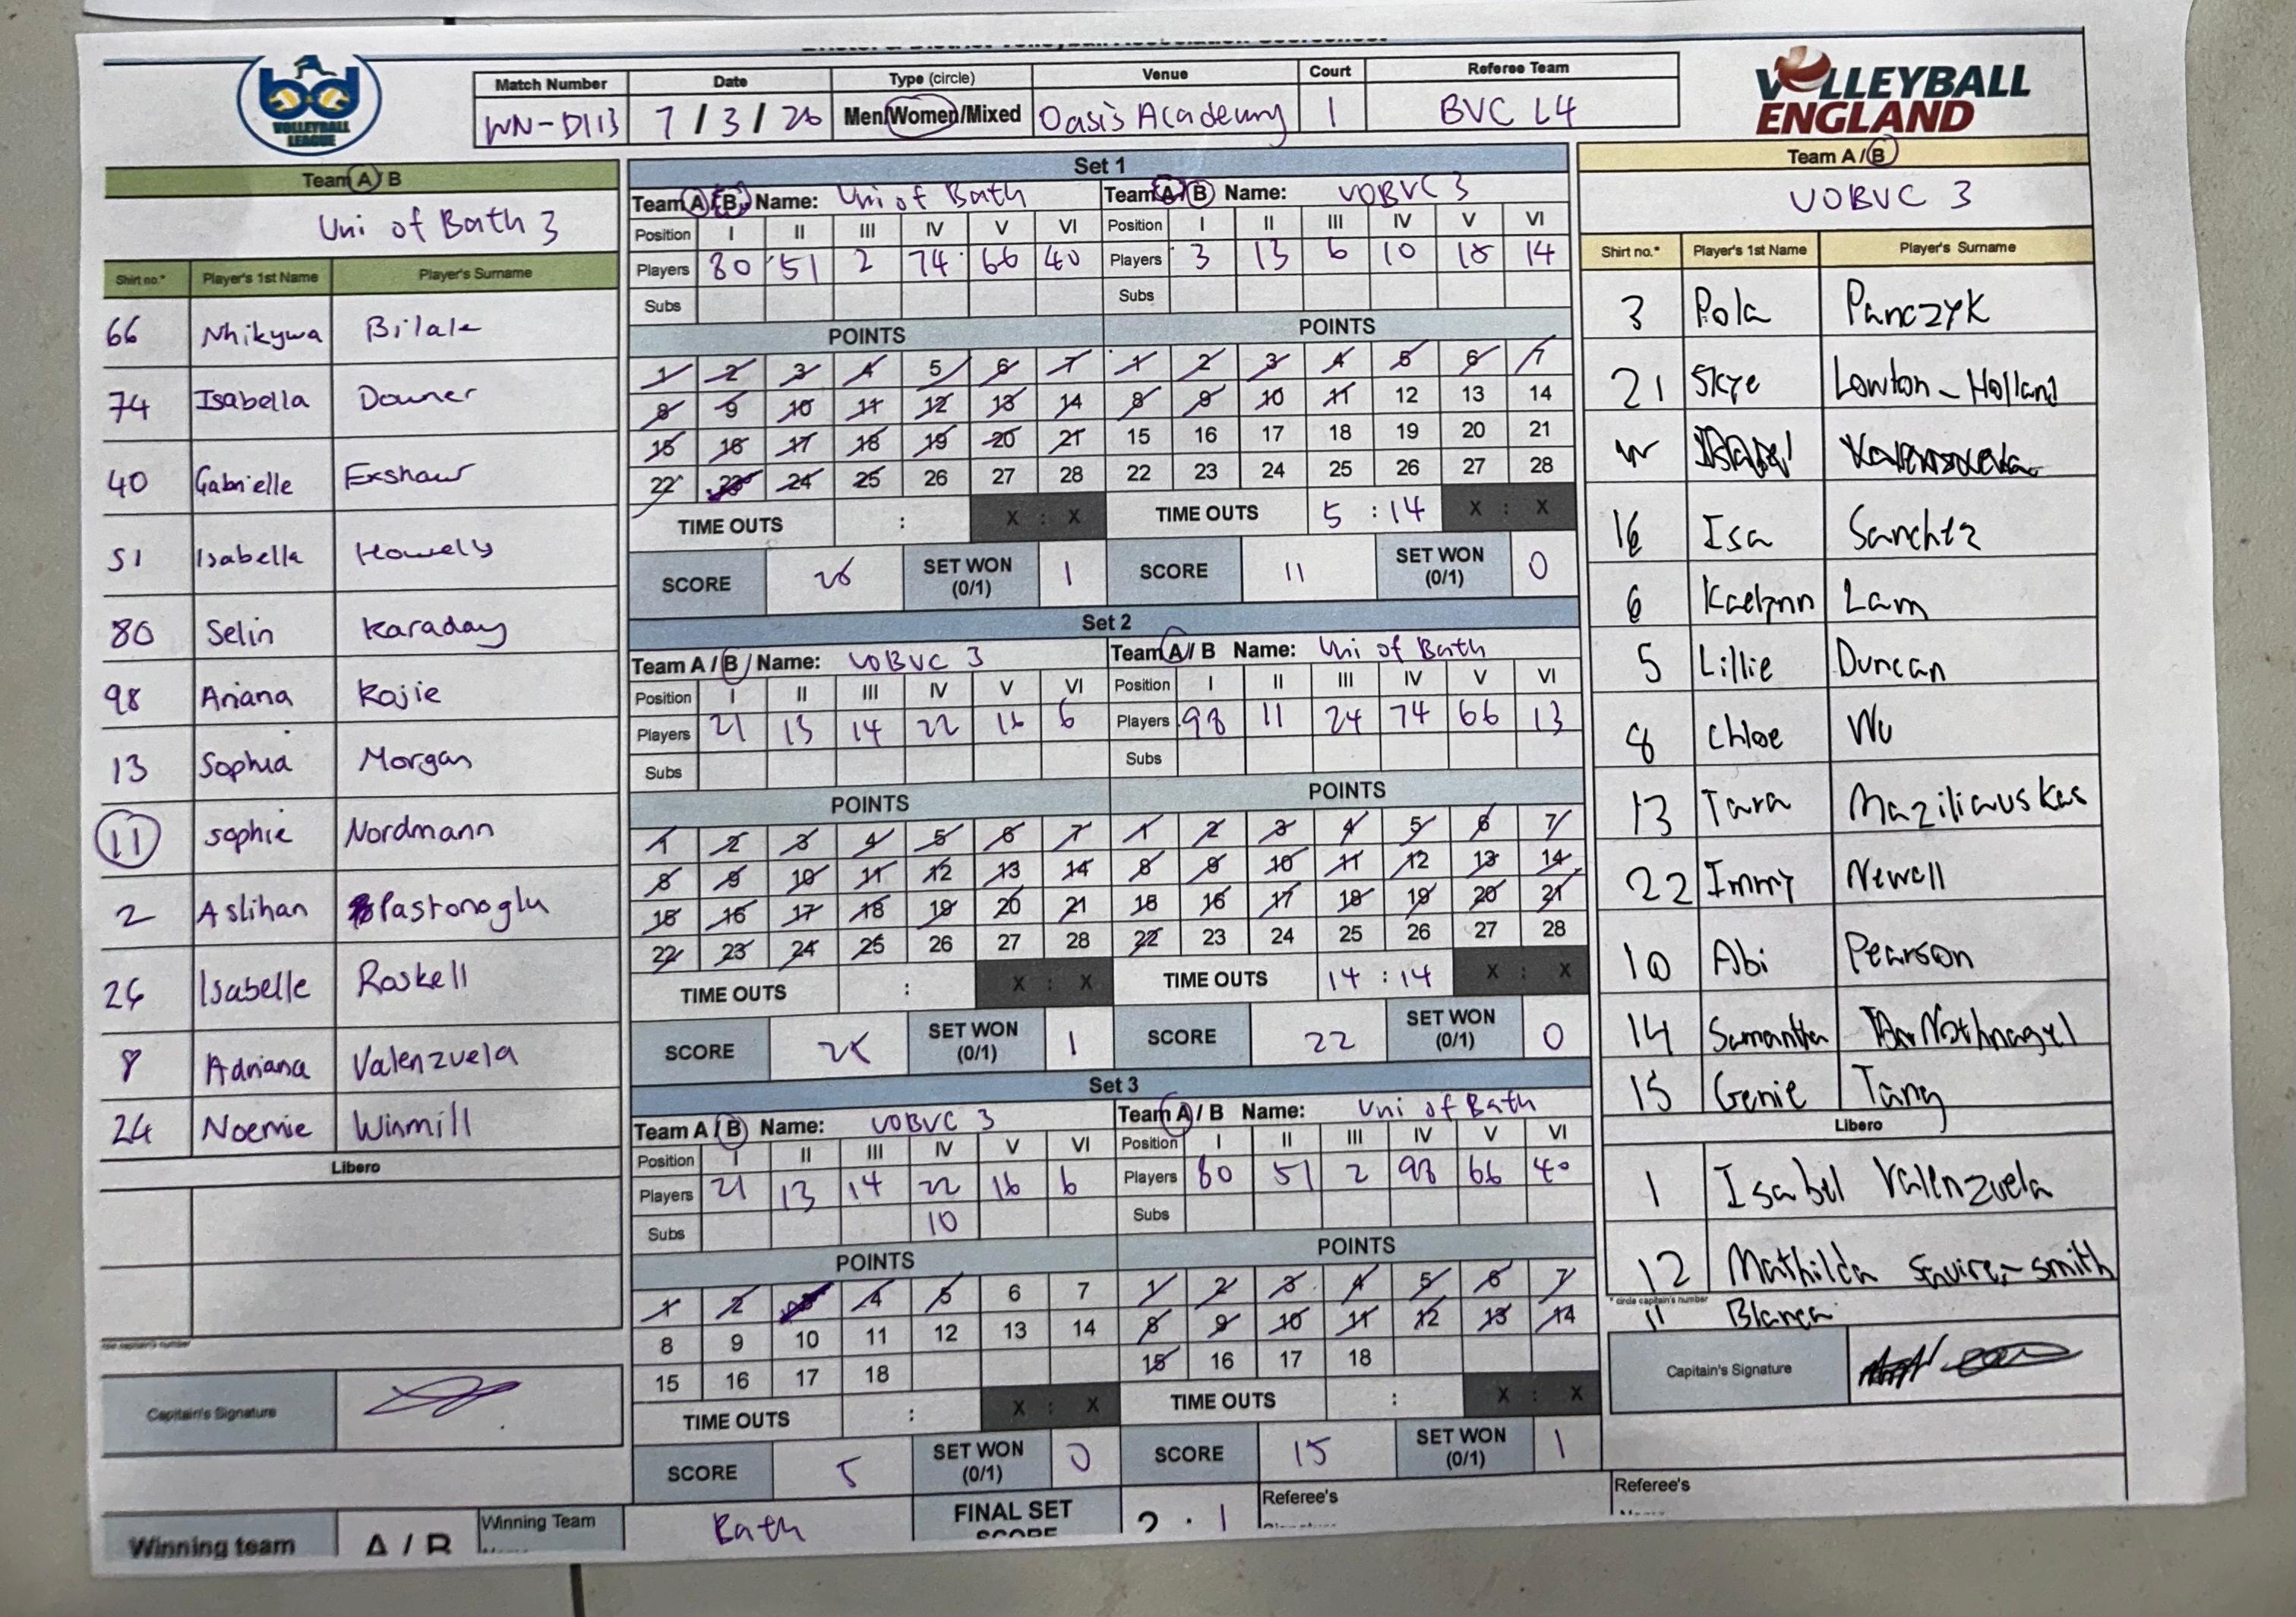 VOLLEYBALL LEAGUE
Match Number Date Type (circle) Venue Court Referee Team
WN-D113 7/3/26 Men/Women/Mixed Oasis Academy 1 BVC L4
VOLLEYBALL ENGLAND
Team A / B
Uni of Bath 3
Shirt no.* Player's 1st Name Player's Surname
66 Nhikywa Bilale
74 Isabella Downer
40 Gabrielle Exshaw
51 Isabella Howely
80 Selin Karaday
98 Ariana Kojie
13 Sophia Morgan
11 Sophie Nordmann
2 Aslihan Pastonoglu
26 Isabelle Roskell
8 Adriana Valenzuela
24 Noemie Winmill
Libero
Capitain's Signature
Set 1
Team A / B Name: Uni of Bath Team A / B Name: UOBVC 3
Position I II III IV V VI Position I II III IV V VI
Players 80 51 2 74 66 40 Players 3 13 6 10 15 14
Subs Subs
POINTS POINTS
1 2 3 4 5 6 7 1 2 3 4 5 6 7
8 9 10 11 12 13 14 8 9 10 11 12 13 14
15 16 17 18 19 20 21 15 16 17 18 19 20 21
22 23 24 25 26 27 28 22 23 24 25 26 27 28
TIME OUTS : X : X TIME OUTS 5 : 14 X : X
SCORE SET WON (0/1) 1 SCORE 11 SET WON (0/1) 0
Set 2
Team A / B / Name: UOBVC 3 Team A / B Name: Uni of Bath
Position I II III IV V VI Position I II III IV V VI
Players 21 13 14 22 16 6 Players 98 11 24 74 66 13
Subs Subs
POINTS POINTS
1 2 3 4 5 6 7 1 2 3 4 5 6 7
8 9 10 11 12 13 14 8 9 10 11 12 13 14
15 16 17 18 19 20 21 15 16 17 18 19 20 21
22 23 24 25 26 27 28 22 23 24 25 26 27 28
TIME OUTS : X : X TIME OUTS 14 : 14 X : X
SCORE 25 SET WON (0/1) 1 SCORE 22 SET WON (0/1) 0
Set 3
Team A / B Name: UOBVC 3 Team A / B Name: Uni of Bath
Position I II III IV V VI Position I II III IV V VI
Players 21 13 14 22 16 6 Players 80 51 2 98 66 40
Subs 10 Subs
POINTS POINTS
1 2 3 4 5 6 7 1 2 3 4 5 6 7
8 9 10 11 12 13 14 8 9 10 11 12 13 14
15 16 17 18 15 16 17 18
TIME OUTS : X : X TIME OUTS : X : X
SCORE 5 SET WON (0/1) 0 SCORE 15 SET WON (0/1) 1
Team A / B
UOBVC 3
Shirt no.* Player's 1st Name Player's Surname
3 Pola Panczyk
21 Skye Lowton-Holland
16 Isa Sanchez
6 Kaelynn Lam
5 Lillie Duncan
8 Chloe Wu
13 Tara Maziliauskas
22 Immy Newell
10 Abi Pearson
14 Samantha Nothnagel
15 Genie Tang
Libero
1 Isabel Valenzuela
12 Mathilda Squire-smith
* circle capitain's number
11 Blanca
Capitain's Signature
Winning team A / B Winning Team Bath FINAL SET SCORE 2 : 1 Referee's Referee's